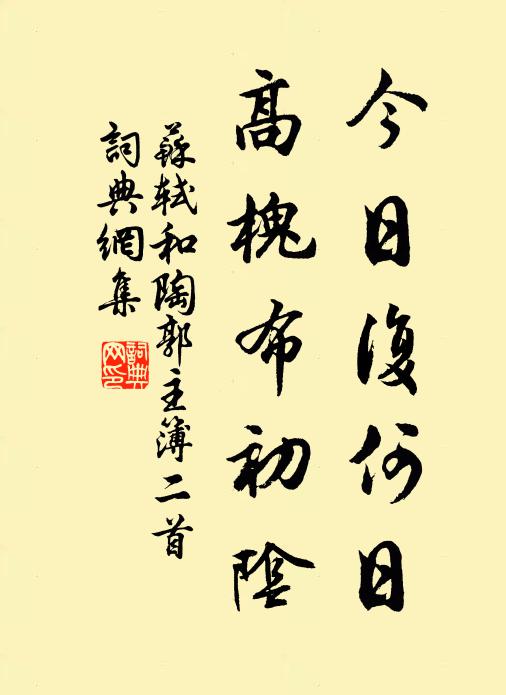 今日復何日
高槐布初陰
蘇軾和陶郭主簿二首
詞典網集
詞典網印